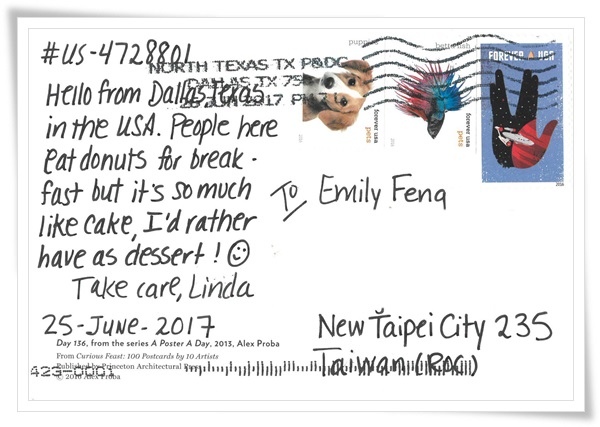 #US-4728801
NORTH TEXAS TX P&DC
DALLAS TX 75
JUN 2017 P
Hello from Dallas, Texas
in the USA. People here
eat donuts for break-
fast but it's so much
like cake, I'd rather
have as dessert! ☺
Take care, Linda
25-June-2017
forever usa
pets
forever usa
pets
FOREVER USA
2016
To Emily Feng
New Taipei City 235
Taiwan (ROC)
Day 136, from the series A Poster A Day, 2013, Alex Proba
From Curious Feast: 100 Postcards by 10 Artists
Published by Princeton Architectural Press
© 2016 Alex Proba
423-0001